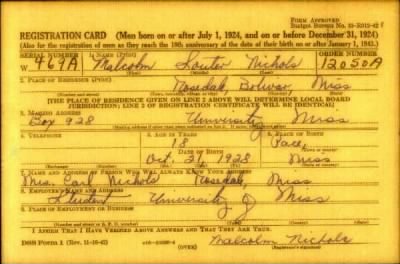 Form Approved
Budget Bureau No. 33-R015-42
REGISTRATION CARD—(Men born on or after July 1, 1924, and on or before December 31, 1924)
(Also for the registration of men as they reach the 18th anniversary of the date of their birth on or after January 1, 1943.)
SERIAL NUMBER 1. NAME (Print) ORDER NUMBER
W 469A Malcolm Nichols 12050A
2. PLACE OF RESIDENCE (Print)
Rosedale, Bolivar, Miss
[THE PLACE OF RESIDENCE GIVEN ON LINE 2 ABOVE WILL DETERMINE LOCAL BOARD
JURISDICTION; LINE 2 OF REGISTRATION CERTIFICATE WILL BE IDENTICAL]
3. MAILING ADDRESS
Box 928 University Miss
4. TELEPHONE 5. AGE IN YEARS 6. PLACE OF BIRTH
18 Pace,
DATE OF BIRTH
Oct. 21, 1928 Miss
7. NAME AND ADDRESS OF PERSON WHO WILL ALWAYS KNOW YOUR ADDRESS
Mrs. Carl Nichols Rosedale, Miss
8. EMPLOYER'S NAME AND ADDRESS
Student University of Miss
9. PLACE OF EMPLOYMENT OR BUSINESS
I AFFIRM THAT I HAVE VERIFIED ABOVE ANSWERS AND THAT THEY ARE TRUE.
DSS Form 1 (Rev. 11-16-42) (OVER) Malcolm Nichols